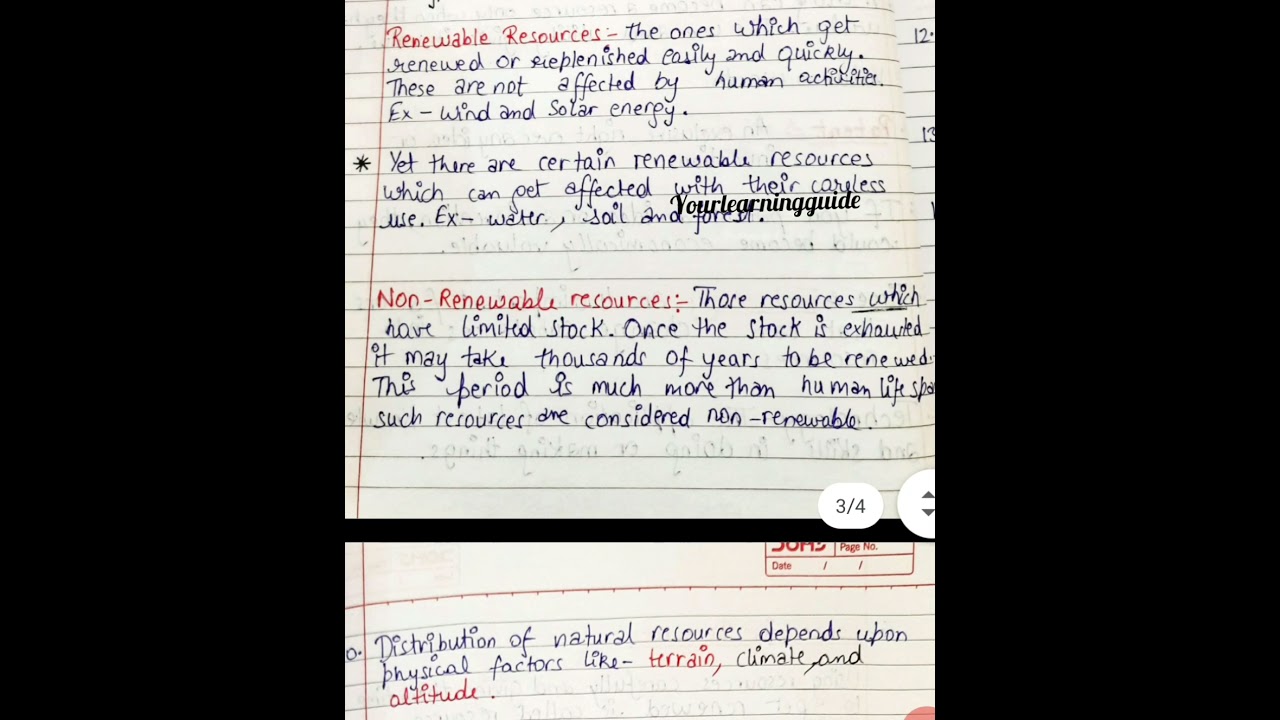 Renewable Resources:- the ones which get
renewed or replenished easily and quickly.
These are not affected by human activities.
Ex - wind and Solar energy.
* Yet there are certain renewable resources
which can get affected with their careless
use. Ex- water, soil and forest.
Yourlearningguide
Non-Renewable resources:- Those resources which
have limited stock. Once the stock is exhausted
it may take thousands of years to be renewed.
This period is much more than human life spa
such resources are considered non-renewable.
12.
13
3/4
Page No.
Date / /
0. Distribution of natural resources depends upon
physical factors like- terrain, climate, and
altitude.